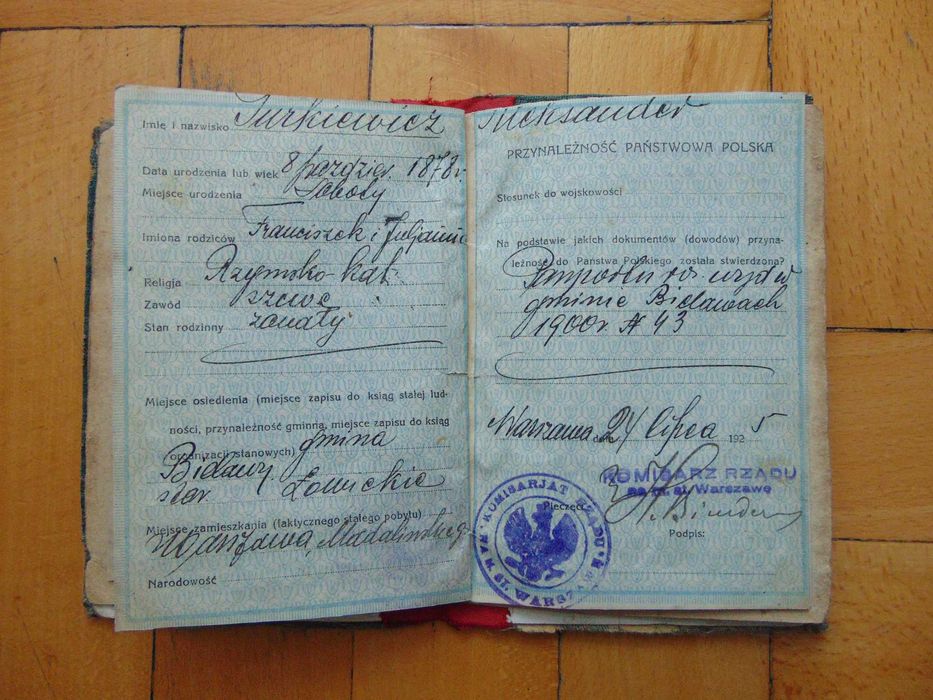 Imię i nazwisko Turkiewicz
Data urodzenia lub wiek 8 paździer. 1878 r.
Miejsce urodzenia Soboty
Imiona rodziców Franciszek i Juljanna
Religja Rzymsko-kat.
Zawód szewc
Stan rodzinny żonaty
Miejsce osiedlenia (miejsce zapisu do ksiąg stałej lud-
ności, przynależność gminna, miejsce zapisu do ksiąg
organizacji stanowych) gmina
Bielawy
Łowickie
Miejsce zamieszkania (faktycznego stałego pobytu)
Warszawa,
Narodowość
Aleksander
PRZYNALEŻNOŚĆ PAŃSTWOWA POLSKA
Stosunek do wojskowości
Na podstawie jakich dokumentów (dowodów) przyna-
leżność do Państwa Polskiego została stwierdzona?
Paszportu ros.
gminie Bielawach
1900 r № 43
Warszawa dnia 24 lipca 1925
KOMISARZ RZĄDU
na m. st. Warszawę
Pieczęć
Podpis:
KOMISARJAT RZĄDU NA M. ST. WARSZAWĘ